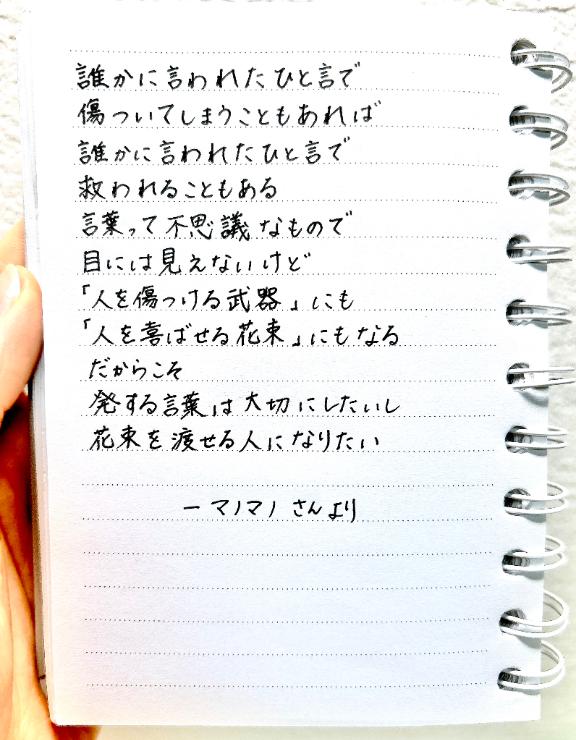 誰かに言われたひと言で
傷ついてしまうこともあれば
誰かに言われたひと言で
救われることもある
言葉って不思議なもので
目には見えないけど
「人を傷つける武器」にも
「人を喜ばせる花束」にもなる
だからこそ
発する言葉は大切にしたいし
花束を渡せる人になりたい
ーマノマノさんより